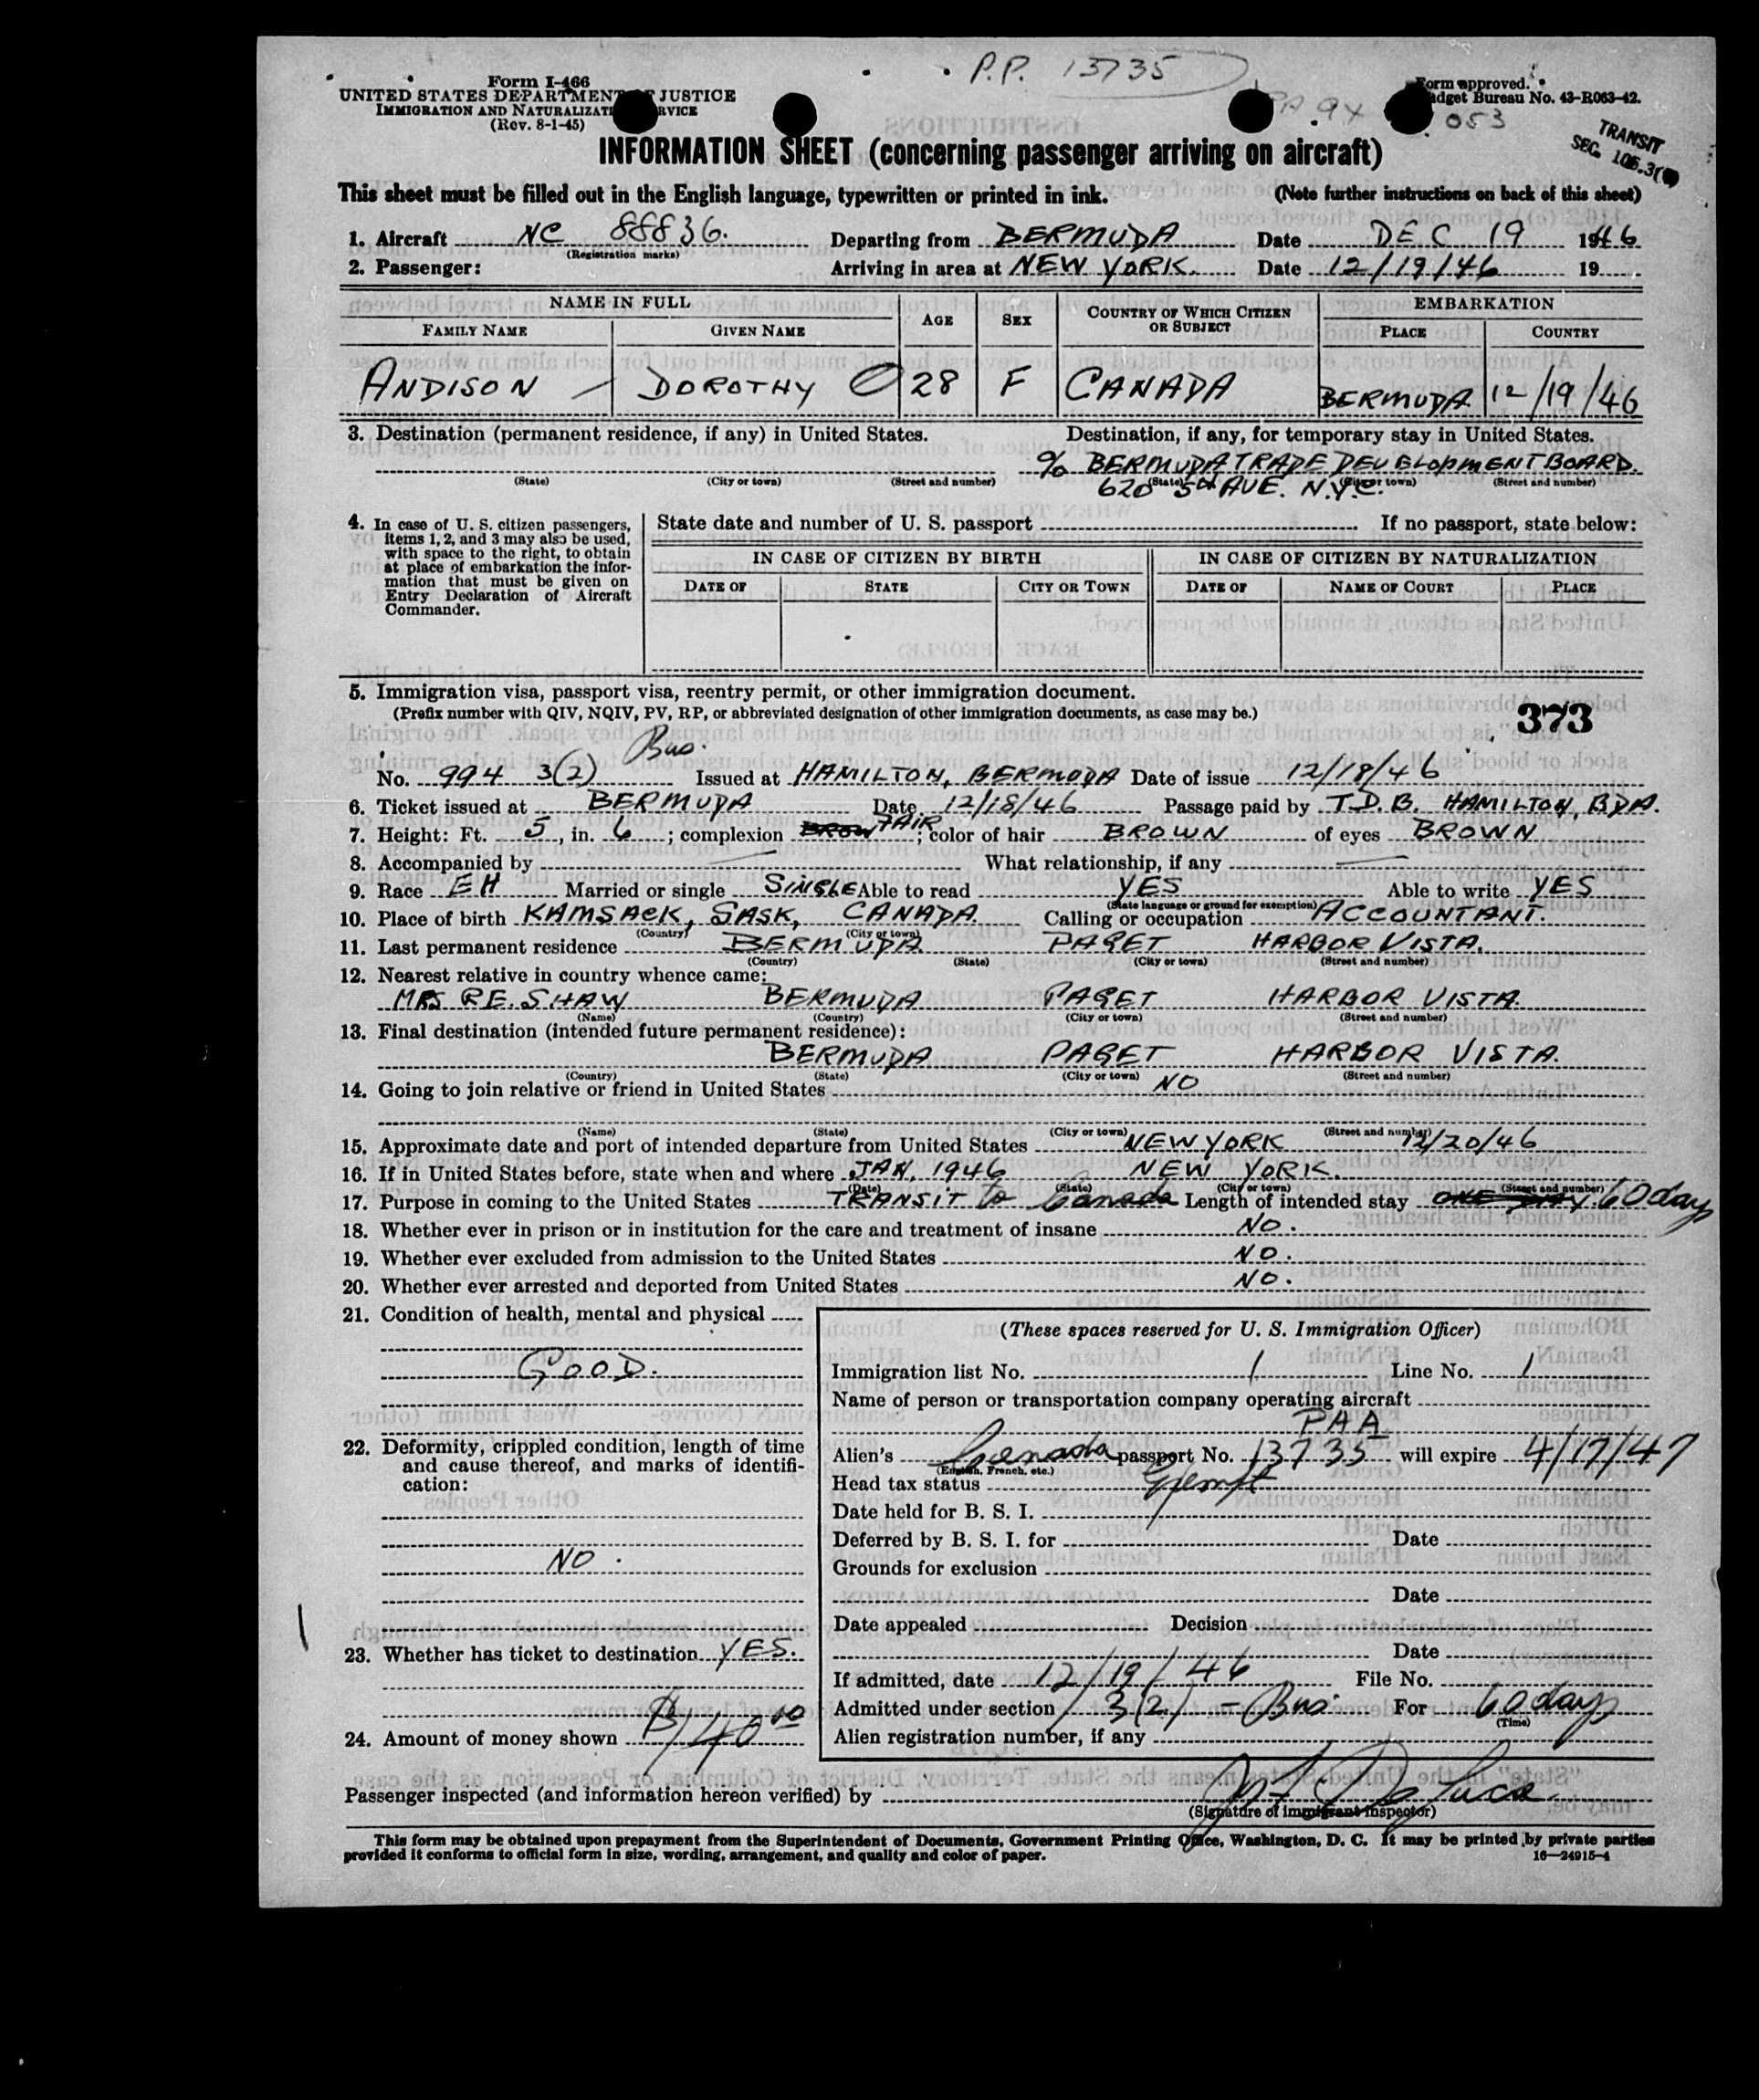 P.P. 13735
Form I-466
UNITED STATES DEPARTMENT OF JUSTICE
IMMIGRATION AND NATURALIZATION SERVICE
(Rev. 8-1-45)
Form approved.
Budget Bureau No. 43-R063-42.
053
TRANSIT
SEC. 105.3
INFORMATION SHEET (concerning passenger arriving on aircraft)
This sheet must be filled out in the English language, typewritten or printed in ink. (Note further instructions on back of this sheet)
1. Aircraft NC 88836. Departing from BERMUDA Date DEC 19 1946
(Registration marks)
2. Passenger: Arriving in area at NEW YORK. Date 12/19/46 19
NAME IN FULL AGE SEX COUNTRY OF WHICH CITIZEN OR SUBJECT EMBARKATION
FAMILY NAME GIVEN NAME PLACE COUNTRY
ANDISON DOROTHY O 28 F CANADA BERMUDA 12/19/46
3. Destination (permanent residence, if any) in United States. Destination, if any, for temporary stay in United States.
% BERMUDA TRADE DEVELOPMENT BOARD.
(State) (City or town) (Street and number) (State) (City or town) (Street and number)
620 5th AVE. N.Y.C.
4. In case of U. S. citizen passengers, items 1, 2, and 3 may also be used, with space to the right, to obtain at place of embarkation the information that must be given on Entry Declaration of Aircraft Commander.
State date and number of U. S. passport If no passport, state below:
IN CASE OF CITIZEN BY BIRTH IN CASE OF CITIZEN BY NATURALIZATION
DATE OF STATE CITY OR TOWN DATE OF NAME OF COURT PLACE
5. Immigration visa, passport visa, reentry permit, or other immigration document.
(Prefix number with QIV, NQIV, PV, RP, or abbreviated designation of other immigration documents, as case may be.) 373
Bus.
No. 994 3(2) Issued at HAMILTON, BERMUDA Date of issue 12/18/46
6. Ticket issued at BERMUDA Date 12/18/46 Passage paid by T.D.B. HAMILTON, BDA.
7. Height: Ft. 5, in. 6; complexion BROW FAIR; color of hair BROWN of eyes BROWN
8. Accompanied by What relationship, if any
9. Race EH Married or single SINGLE Able to read YES Able to write YES
(State language or ground for exemption)
10. Place of birth KAMSACK, SASK, CANADA. Calling or occupation ACCOUNTANT.
(Country) (City or town)
11. Last permanent residence BERMUDA PAGET HARBOR VISTA.
(Country) (State) (City or town) (Street and number)
12. Nearest relative in country whence came:
MRS R.E. SHAW BERMUDA PAGET HARBOR VISTA.
(Name) (Country) (City or town) (Street and number)
13. Final destination (intended future permanent residence):
BERMUDA PAGET HARBOR VISTA.
(Country) (State) (City or town) (Street and number)
14. Going to join relative or friend in United States NO
(Name) (State) (City or town) (Street and number)
15. Approximate date and port of intended departure from United States NEW YORK 12/20/46
16. If in United States before, state when and where JAN, 1946 NEW YORK.
(Date) (State) (City or town) (Street and number)
17. Purpose in coming to the United States TRANSIT to Canada Length of intended stay ONE DAY. 60 days
18. Whether ever in prison or in institution for the care and treatment of insane NO.
19. Whether ever excluded from admission to the United States NO.
20. Whether ever arrested and deported from United States NO.
21. Condition of health, mental and physical
GOOD.
22. Deformity, crippled condition, length of time and cause thereof, and marks of identification:
NO.
23. Whether has ticket to destination YES.
24. Amount of money shown $140.00
(These spaces reserved for U. S. Immigration Officer)
Immigration list No. 1 Line No. 1
Name of person or transportation company operating aircraft
PAA
Alien's Canada passport No. 13735 will expire 4/17/47
(English, French, etc.)
Head tax status Exempt
Date held for B. S. I.
Deferred by B. S. I. for Date
Grounds for exclusion
Date
Date appealed Decision
Date
If admitted, date 12/19/46 File No.
Admitted under section 3(2) - Bus. For 60 days
(Time)
Alien registration number, if any
Passenger inspected (and information hereon verified) by
(Signature of immigrant inspector)
This form may be obtained upon prepayment from the Superintendent of Documents, Government Printing Office, Washington, D. C. It may be printed by private parties
provided it conforms to official form in size, wording, arrangement, and quality and color of paper. 16—24915-4